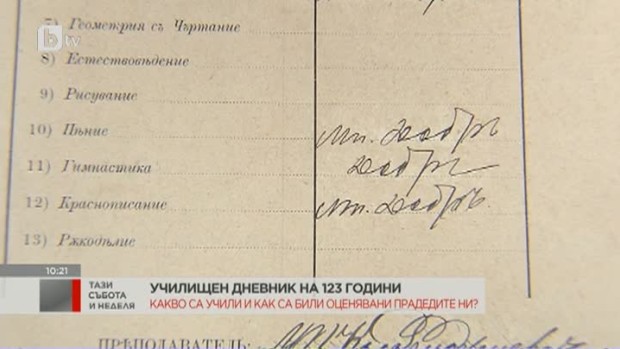 7) Геометрия съ Чъртание
bтv
8) Естествовѣдение
9) Рисувание
10) Пѣние мн. добръ
11) Гимнастика добръ
12) Краснописание мн. добръ
13) Рѫкодѣлие
10:21
ТАЗИ СЪБОТА И НЕДЕЛЯ
УЧИЛИЩЕН ДНЕВНИК НА 123 ГОДИНИ
КАКВО СА УЧИЛИ И КАК СА БИЛИ ОЦЕНЯВАНИ ПРАДЕДИТЕ НИ?
ПРѢПОДАВАТЕЛЬ: